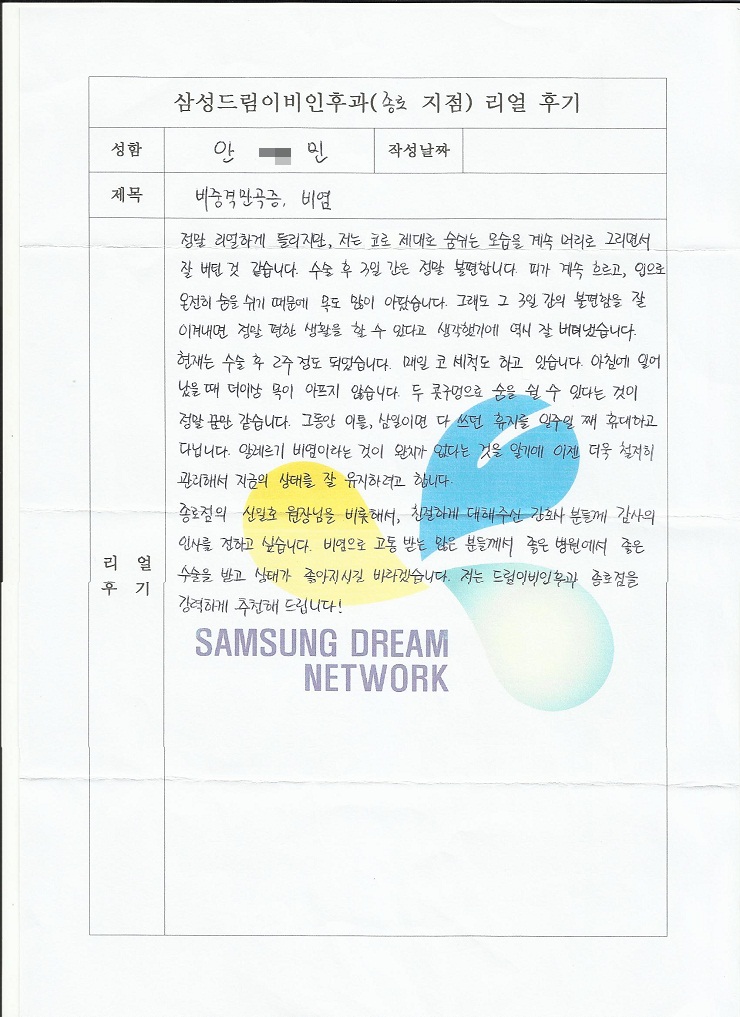 삼성드림이비인후과(종로 지점) 리얼 후기
성함 안 민 작성날짜
제목 비중격만곡증, 비염
정말 리얼하게 들리지만, 저는 코로 제대로 숨쉬는 모습을 계속 머리로 그리면서
잘 버틴 것 같습니다. 수술 후 3일 간은 정말 불편합니다. 피가 계속 흐르고, 입으로
온전히 숨을 쉬기 때문에 목도 많이 아팠습니다. 그래도 그 3일 간의 불편함을 잘
이겨내면 정말 편한 생활을 할 수 있다고 생각했기에 역시 잘 버텨냈습니다.
현재는 수술 후 2주 정도 되었습니다. 매일 코 세척도 하고 있습니다. 아침에 일어
났을 때 더이상 목이 아프지 않습니다. 두 콧구멍으로 숨을 쉴 수 있다는 것이
정말 꿈만 같습니다. 그동안 이틀, 삼일이면 다 쓰던 휴지를 일주일 째 휴대하고
다닙니다. 알레르기 비염이라는 것이 완치가 없다는 것을 알기에 이젠 더욱 철저히
관리해서 지금의 상태를 잘 유지하려고 합니다.
종로점의 신일호 원장님을 비롯해서, 친절하게 대해주신 간호사 분들께 감사의
인사를 전하고 싶습니다. 비염으로 고통 받는 많은 분들께서 좋은 병원에서 좋은
수술을 받고 상태가 좋아지시길 바라겠습니다. 저는 드림이비인후과 종로점을
강력하게 추천해 드립니다!
리 얼
후 기
SAMSUNG DREAM
NETWORK